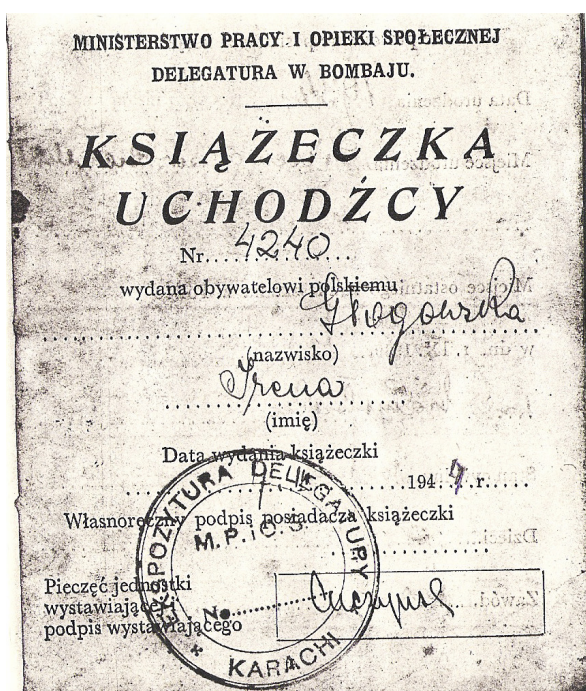 MINISTERSTWO PRACY I OPIEKI SPOŁECZNEJ
DELEGATURA W BOMBAJU.
KSIĄŻECZKA
UCHODŹCY
Nr....4240......
wydana obywatelowi polskiemu
Głogowska
(nazwisko)
Irena
(imię)
Data wydania książeczki
194 r.
Własnoręczny podpis posiadacza książeczki
Pieczęć jednostki
wystawiającej i
podpis wystawiającego
EKSPOZYTURA DELEGATURY
M.P.i O.S.
No.
* KARACHI